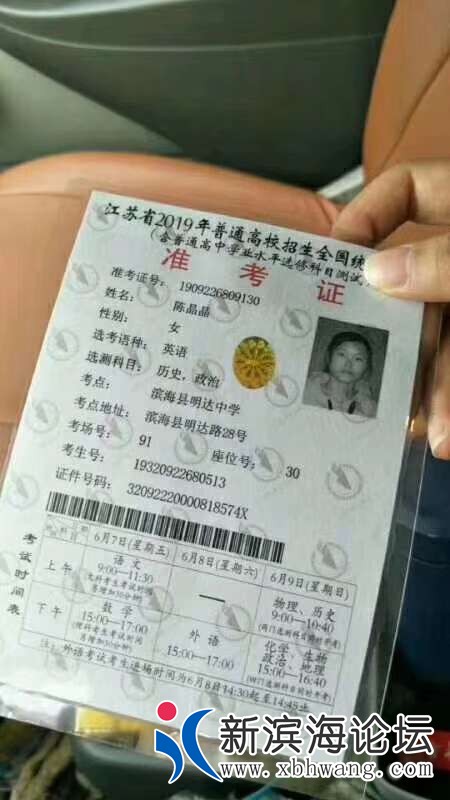 江苏省2019年普通高校招生全国统
（含普通高中学业水平选修科目测试）
准考证
准考证号： 1909226809130
姓名： 陈晶晶
性别： 女
选考语种： 英语
选测科目： 历史，政治
考点： 滨海县明达中学
考点地址： 滨海县明达路28号
考场号： 91 座位号： 30
考生号： 19320922680513
证件号码： 32092220000818574X
考试时间表
科目 日期 6月7日(星期五) 6月8日(星期六) 6月9日(星期日)
上午 语文 9:00—11:30 (文科考生考试时间另增加30分钟) — 物理、历史 9:00—10:40 (两门选测科目同时开考)
下午 数学 15:00—17:00 (理科考生考试时间另增加30分钟) 外语 15:00—17:00 化学、生物 政治、地理 15:00—16:40 (四门选测科目同时开考)
注：外语考试考生进场时间为6月8日14:30起至14:45止
新滨海论坛
www.xbhwang.com